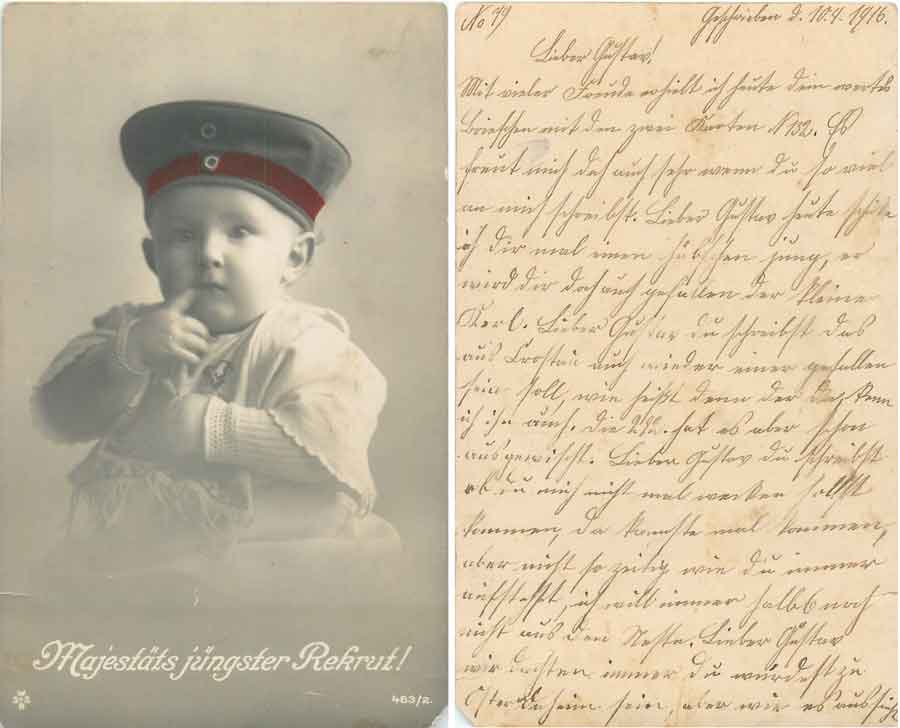 Majestäts jüngster Rekrut!
463/2.
No 79 Geschrieben d. 10.4.1916.
Lieber Gustav!
Mit vieler Freude erhielt ich heute dein wertes
Briefchen mit den zwei Karten N 132. Es
freut mich doch auch sehr wenn du so viel
an mich schreibst. Lieber Gustav heute schicke
ich dir mal einen hübschen jung, er
wird dir doch auch gefallen der kleine
Kerl. Lieber Gustav du schreibst das
aus Crostau auch wieder einer gefallen
sein soll, wie heißt denn der kenn
ich ihn auch. Die hat es aber schon
ausgewischt. Lieber Gustav du schreibst
ob du mich nicht mal wecken sollst
kommen, da kannste mal kommen,
aber nicht so zeitig wie du immer
aufstehst, ich will immer halb noch
nicht aus dem Neste. Lieber Gustav
wir dachten immer du würdest zu
Ostern daheim sein, aber wie es aussieht